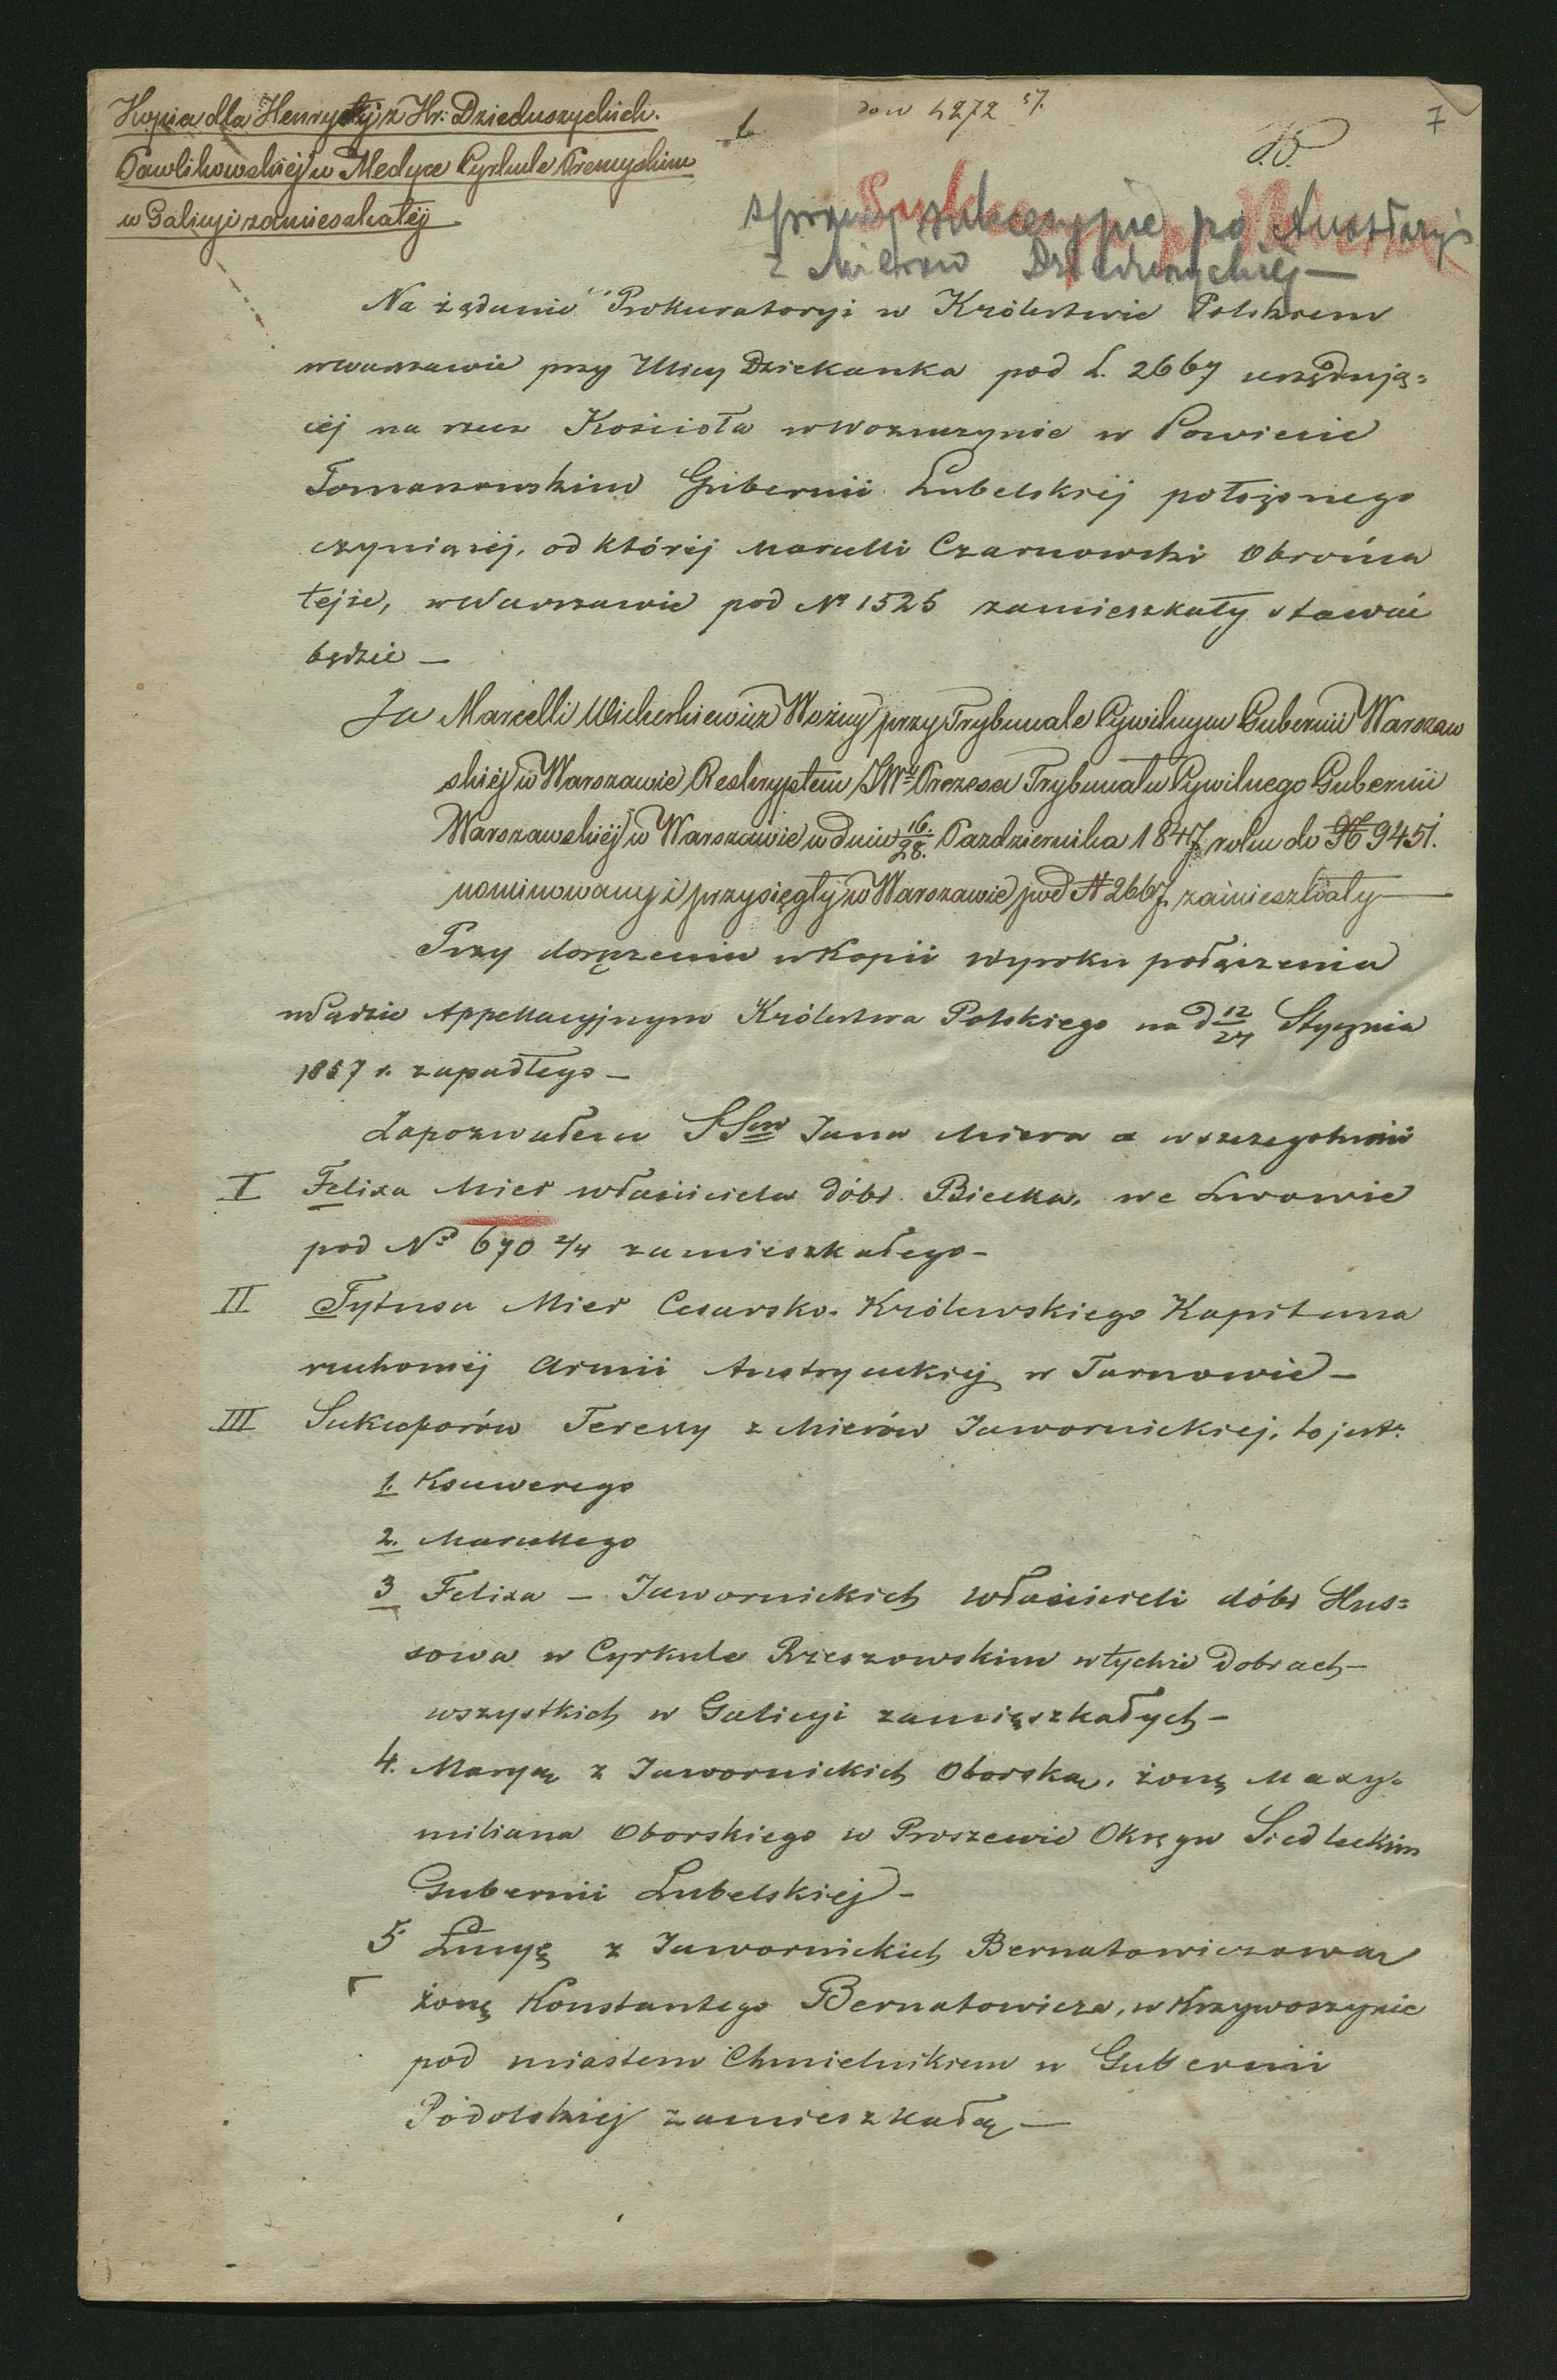 Kopia dla Henryety z Hr: Dzieduszyckich.
Pawlikowskiéj w Medyce Cyrkule Przemyskim
w Galicyi zamieszkałéj
1.
do w 4272 57.
7
sprawy sukcesyjne po Anastazyi
z Mierów Dzieduszyckiej —
Na żądanie Prokuratoryi w Królestwie Polskiem
w Warszawie przy Ulicy Dziekanka pod L. 2667 urzędują=
céj na rzecz Kościoła w Wozuczynie w Powiecie
Tomaszowskim Gubernii Lubelskiéj położonego
czyniącéj, od któréj Marcelli Czarnowski Obrońca
tejże, w Warszawie pod No 1525 zamieszkały stawać
będzie —
Ja Marcelli Wicherkiewicz Woźny przy Trybunale Cywilnym Gubernii Warszaw
skiéj w Warszawie Reskryptem JWo Prezesa Trybunału Cywilnego Gubernii
Warszawskiéj w Warszawie w dniu 16/28. Pazdziernika 1847 roku do No 9451.
nominowany i przysięgły w Warszawie pod No 2667 zamieszkały —
Przy doręczeniu w Kopii wyroku połączenia
w Sądzie Appellacyjnym Królestwa Polskiego na d 12/24 Stycznia
1857 r. zapadłego —
Zapozwałem SSów Jana Miera a w szczególności
I Felixa Mier właściciela dóbr Biecka, we Lwowie
pod No 670 2/4 zamieszkałego —
II Tytusa Mier Cesarsko-Królewskiego Kapitana
ruchoméj Armii Austryackiéj w Tarnowie —
III Sukcessorów Teressy z Mierów Jawornickiej, to jest:
1. Ksawerego
2. Marcellego
3 Felixa — Jawornickich właścicieli dóbr Hus=
sowa w Cyrkule Rzeszowskim w tychże Dobrach —
wszystkich w Galicyi zamieszkałych —
4. Maryą z Jawornickich Oborską, żonę Maxy=
miliana Oborskiego w Proszewie Okręgu Siedleckim
Gubernii Lubelskiéj —
5 Lucyę z Jawornickich Bernatowiczową
żonę Konstantego Bernatowicza, w Krzywoszynie
pod miastem Chmielnikiem w Gubernii
Podolskiéj zamieszkałą —